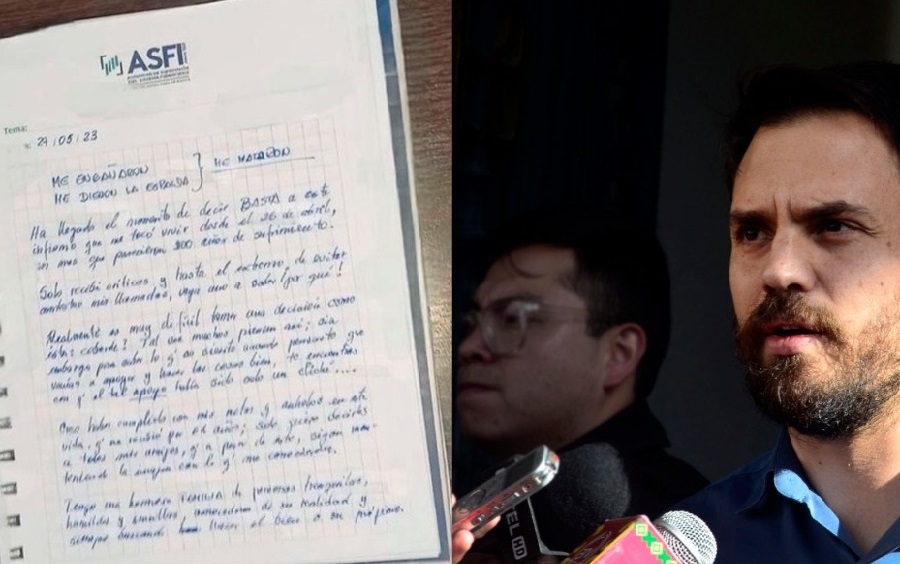 ASFI
Tema:
27/05/23
ME ENGAÑARON
ME DIERON LA ESPALDA } ME MATARON
Ha llegado el momento de decir BASTA a este
infierno que me tocó vivir desde el 26 de abril,
un mes que parecieron 200 años de sufrimiento.
Solo recibí críticas y hasta el extremo de evitar
contestar mis llamadas, vaya uno a saber por qué!
Realmente es muy difícil tomar una decisión como
ésta; cobarde? Tal vez muchos piensen así; sin
embargo pasa todo lo q' no
vayan a apoyar y hacer las cosas bien, te encuentras
con q' el tal apoyo había sido solo un cliché....
Creo haber cumplido con mis metas y anhelos en esta
vida, q' no
a todos mis amigos, q' a pesar de esto, sigan man-
teniendo la imagen con la q' me conocieron.
Tengo una hermosa FAMILIA de personas
humildes y sencillas, de su realidad y
siempre buscando hacer el bien a su prójimo.
TEL HD